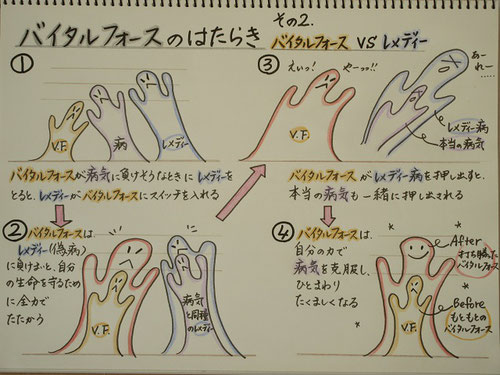 バイタルフォースのはたらき
その2.
バイタルフォース VS レメディー
①
V.F.
病
レメディー
バイタルフォースが病気に負けそうなときにレメディーを
とると、レメディーがバイタルフォースにスイッチを入れる
②バイタルフォースは、
レメディー(偽病)
に負けまいと、自分
の生命を守るため
に全力で
たたかう
V.F.
病気
と同種
のレメディー
③
えいっ!
やーっ!!
あー
れー
V.F.
レメディー病
本当の病気
バイタルフォースがレメディー病を押し出すと、
本当の病気も一緒に押し出される
④
バイタルフォースは、
自分の力で
病気を克服し、
ひとまわり
たくましくなる
V.F.
After
打ち勝った
バイタルフォース
Before
もともとの
バイタルフォース